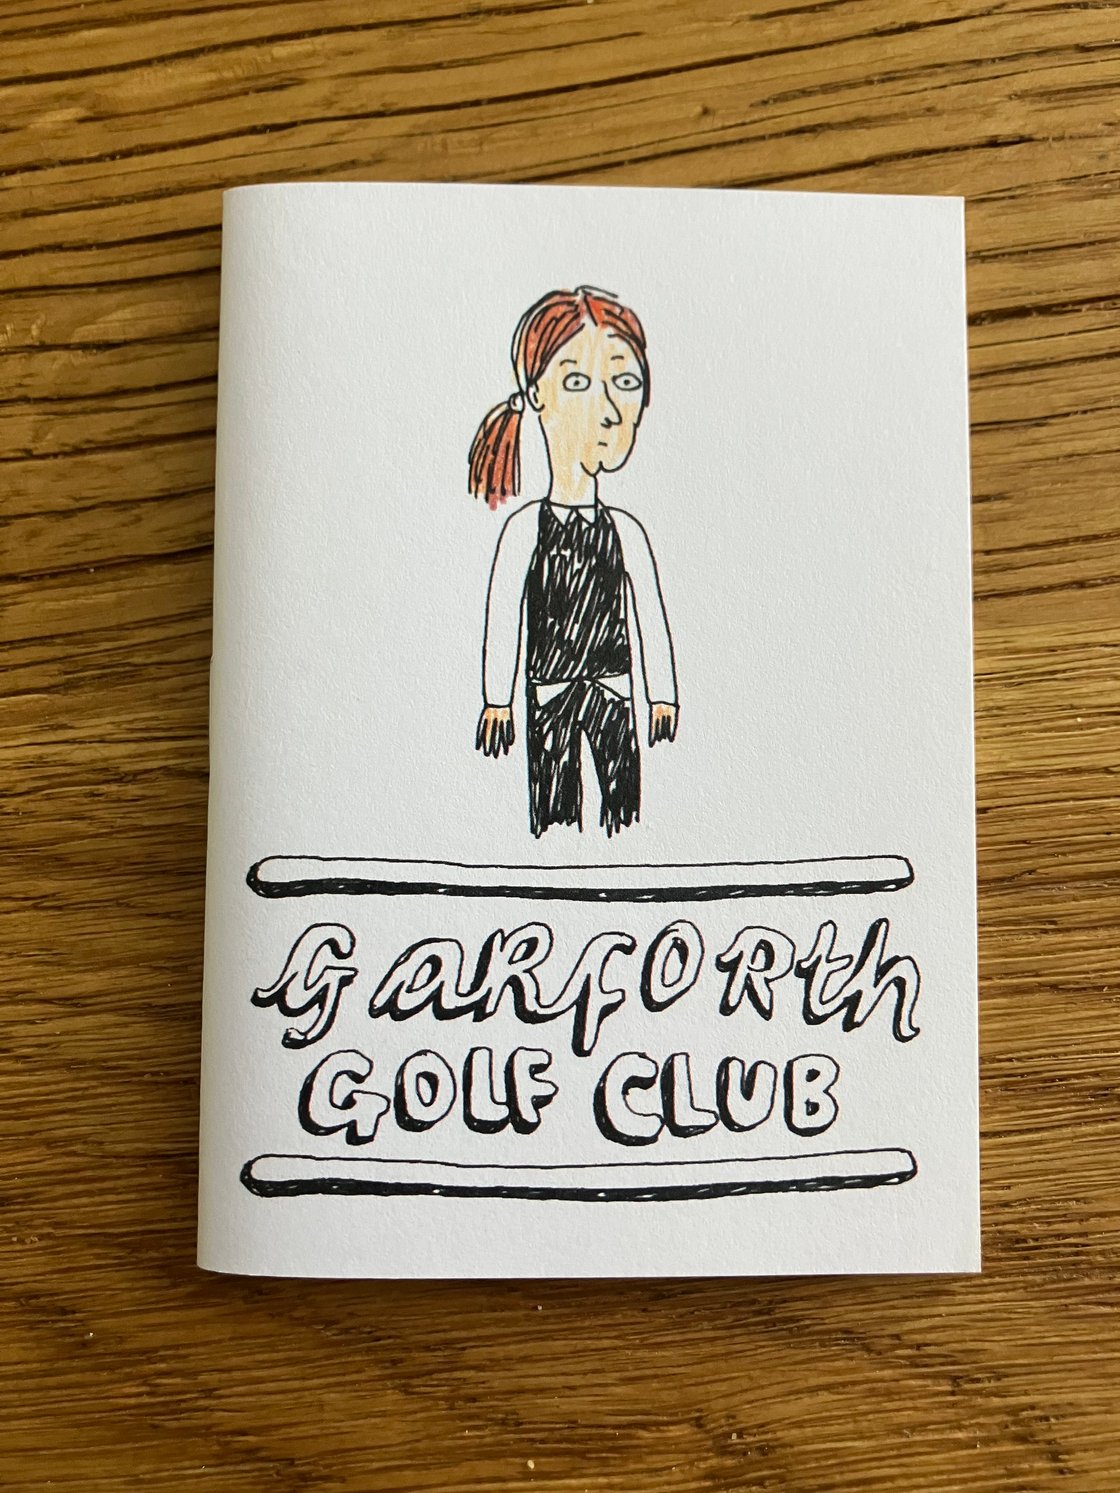 GaRfORth
GOLF CLUB